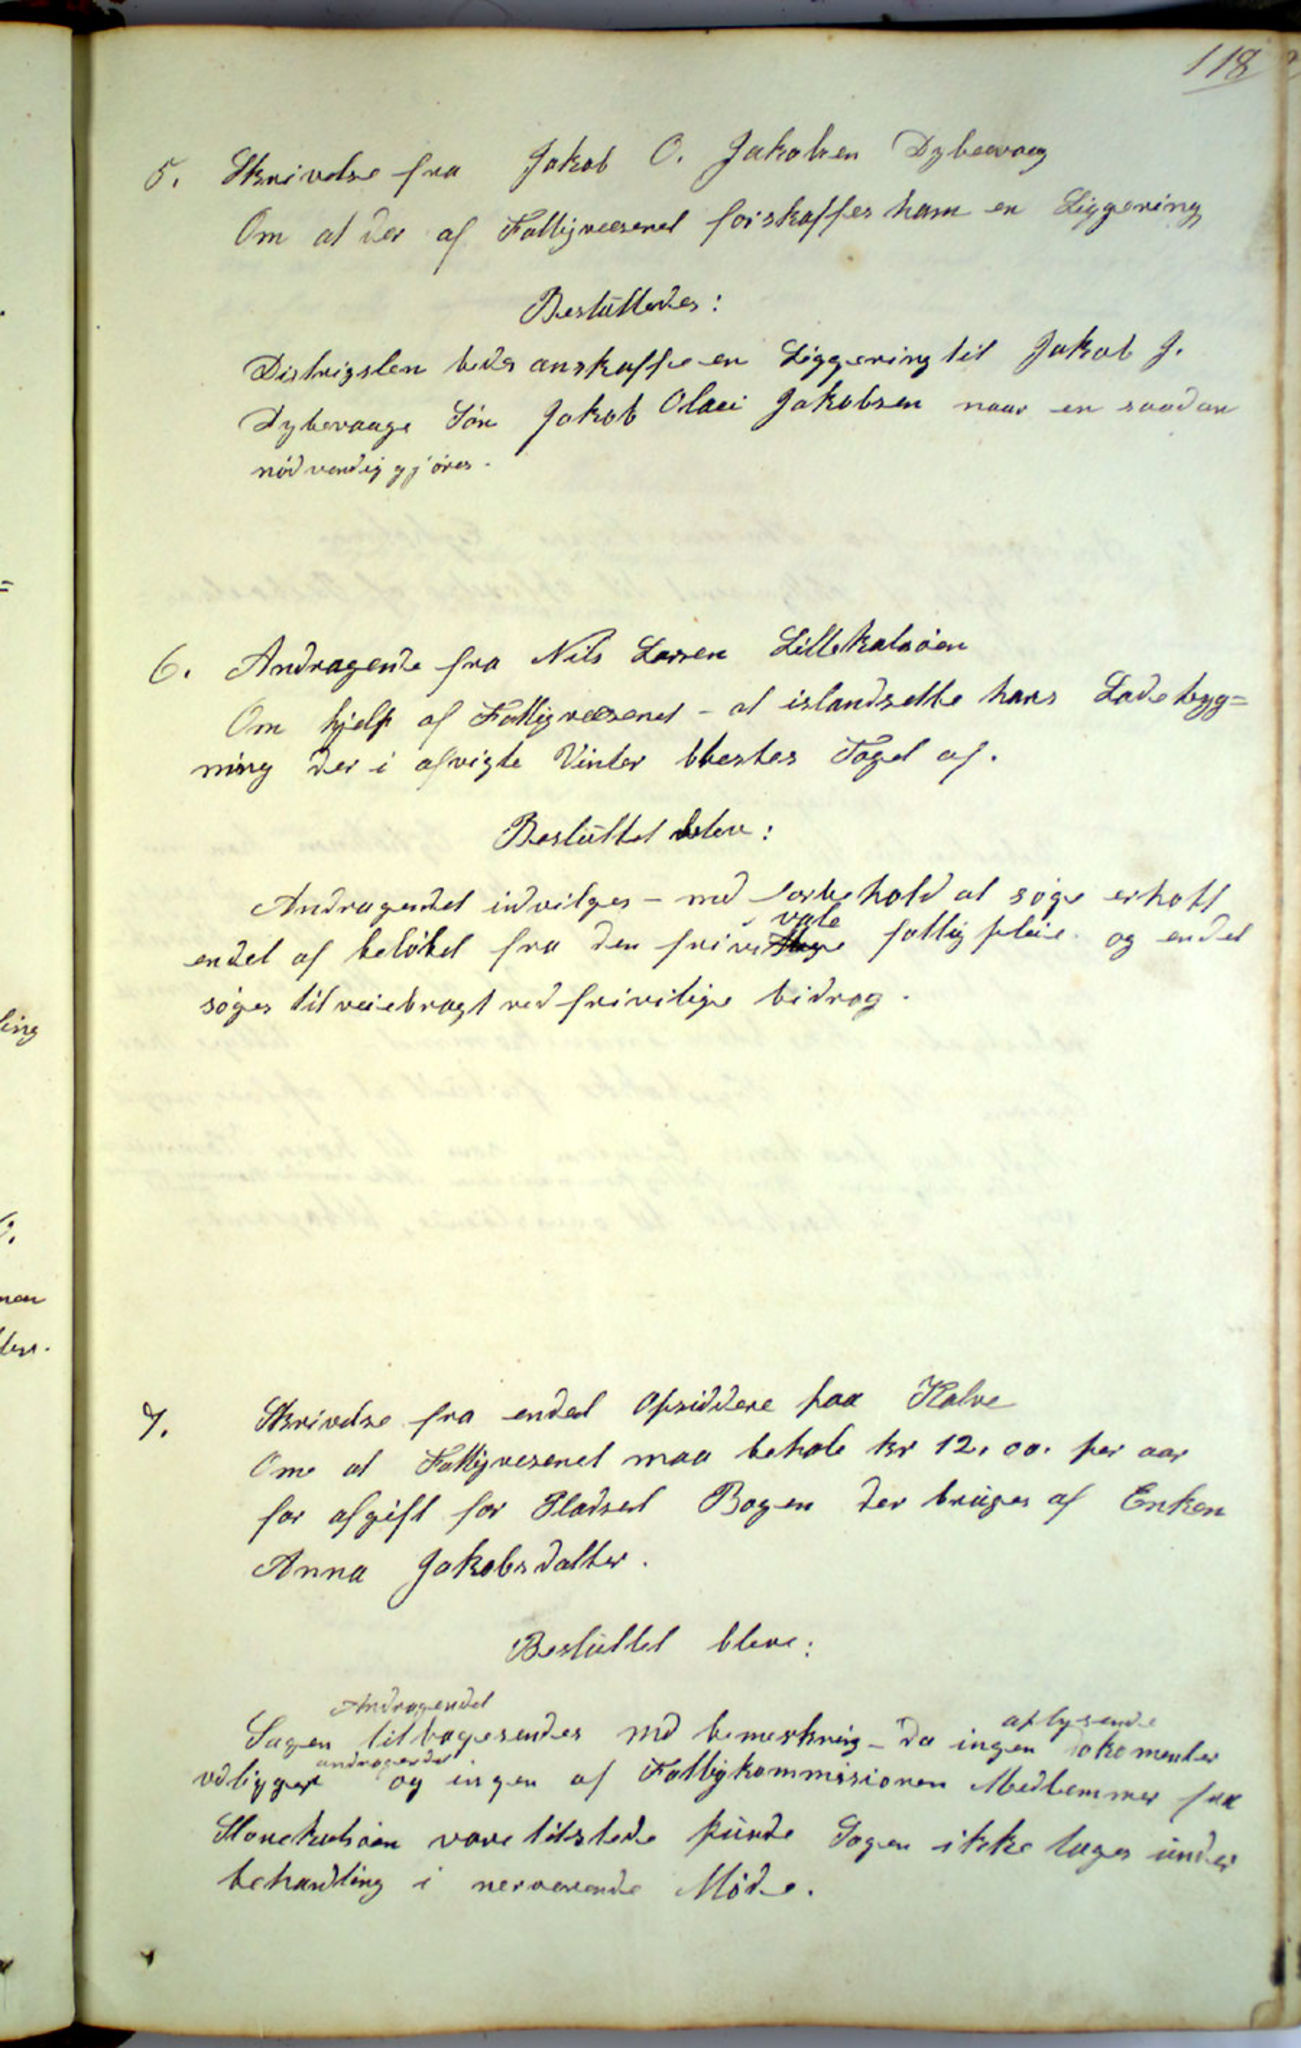 118
5. Skrivelse fra Jakob O. Jakobsen Dybevaag
Om at der af Fattigvæsenet forskaffes ham en Liggering
Besluttedes:
Distrigslen bedes anskaffe en Liggering til Jakob J.
Dybevaags Søn Jakob Olai Jakobsen naar en saadan
nødvendig gjøres.
6. Andragende fra Nils Larsen Lillekalsøen
Om hjelp af Fattigvæsenet - at istandsette hans Ladebyg=
ning der i afvigte Vinter blæstes Taget af.
Besluttet blev:
Andragendet indvilges - med forbehold at søge erholt
vate
endel af beløbet fra den pri fattigpleie og endel
søges tilveiebragt ved frivilige bidrag.
7. Skrivelse fra endel Opsiddere paa Kalve
Om at Fattigvesenet maa betale kr 12.00. per aar
for afgift for Pladset Bogen der bruges af Enken
Anna Jakobsdatter.
Besluttet bleve:
Andragendet
oplysende
Sagen tilbagesendes med bemerkning - da ingen dokumenter
andragendet
vedligger og ingen af Fattigkommisionen Medlemmer fra
Storekalsøen vare tilstede kunde Sagen ikke tages under
behandling i nerverende Møde.